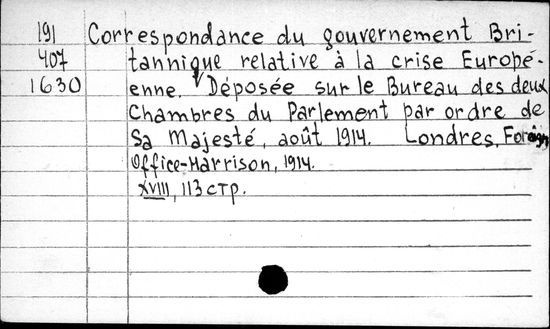 191 Correspondance du gouvernement Bri-
407 tannique relative à la crise Europé-
1630 enne. Déposée sur le Bureau des deux
Chambres du Parlement par ordre de
Sa Majesté, août 1914. Londres, Foreign
Office-Harrison, 1914.
XVIII, 113 стр.